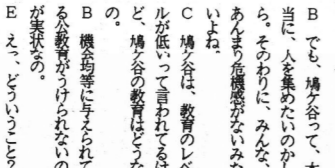 B でも、鳩ケ谷って、本
当に、人を集めたいのかし
ら。そのわりに、みんな、
あんまり危機感がないみた
いよね。
C 鳩ケ谷は、教育のレベ
ルが低いって言われてるけ
ど、鳩ケ谷の教育はどうな
の。
B 機会均等に与えられて
る人教育がうけられないの
が実状なの。
E えっ、どういうこと？